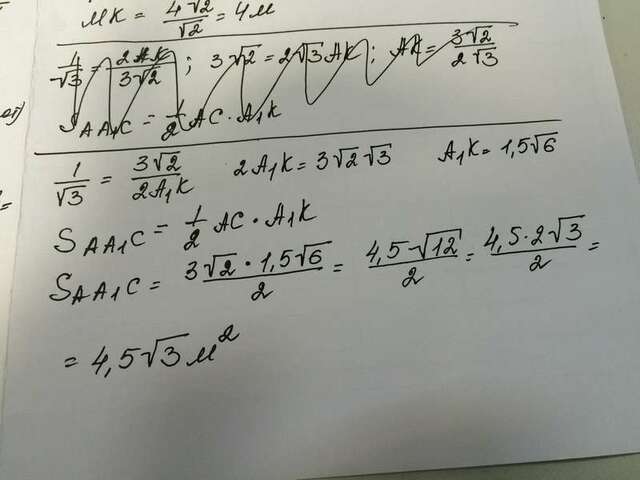 MK = 4√2/√2 = 4м
1/√3 = 2AK/3√2 ; 3√2 = 2√3AK ; AK = 3√2/2√3
SAA₁C = 1/2 AC · A₁K
1/√3 = 3√2/2A₁K 2A₁K = 3√2√3 A₁K = 1,5√6
SAA₁C = 1/2 AC · A₁K
SAA₁C = 3√2 · 1,5√6/2 = 4,5 · √12/2 = 4,5 · 2√3/2 =
= 4,5√3 м²